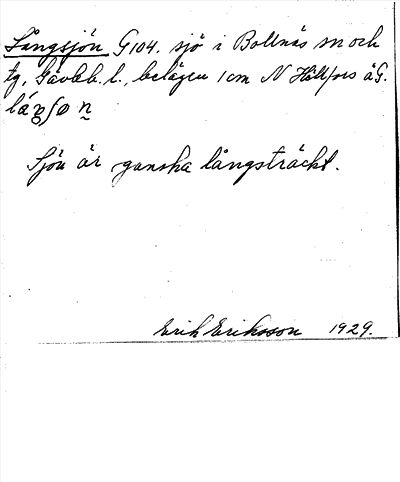 Långsjön G104. sjö i Bollnäs sn och
tg, Gävleb. l., belägen 1cm N Hällfors å G.
Sjön är ganska långsträckt.
Erik Eriksson 1929.